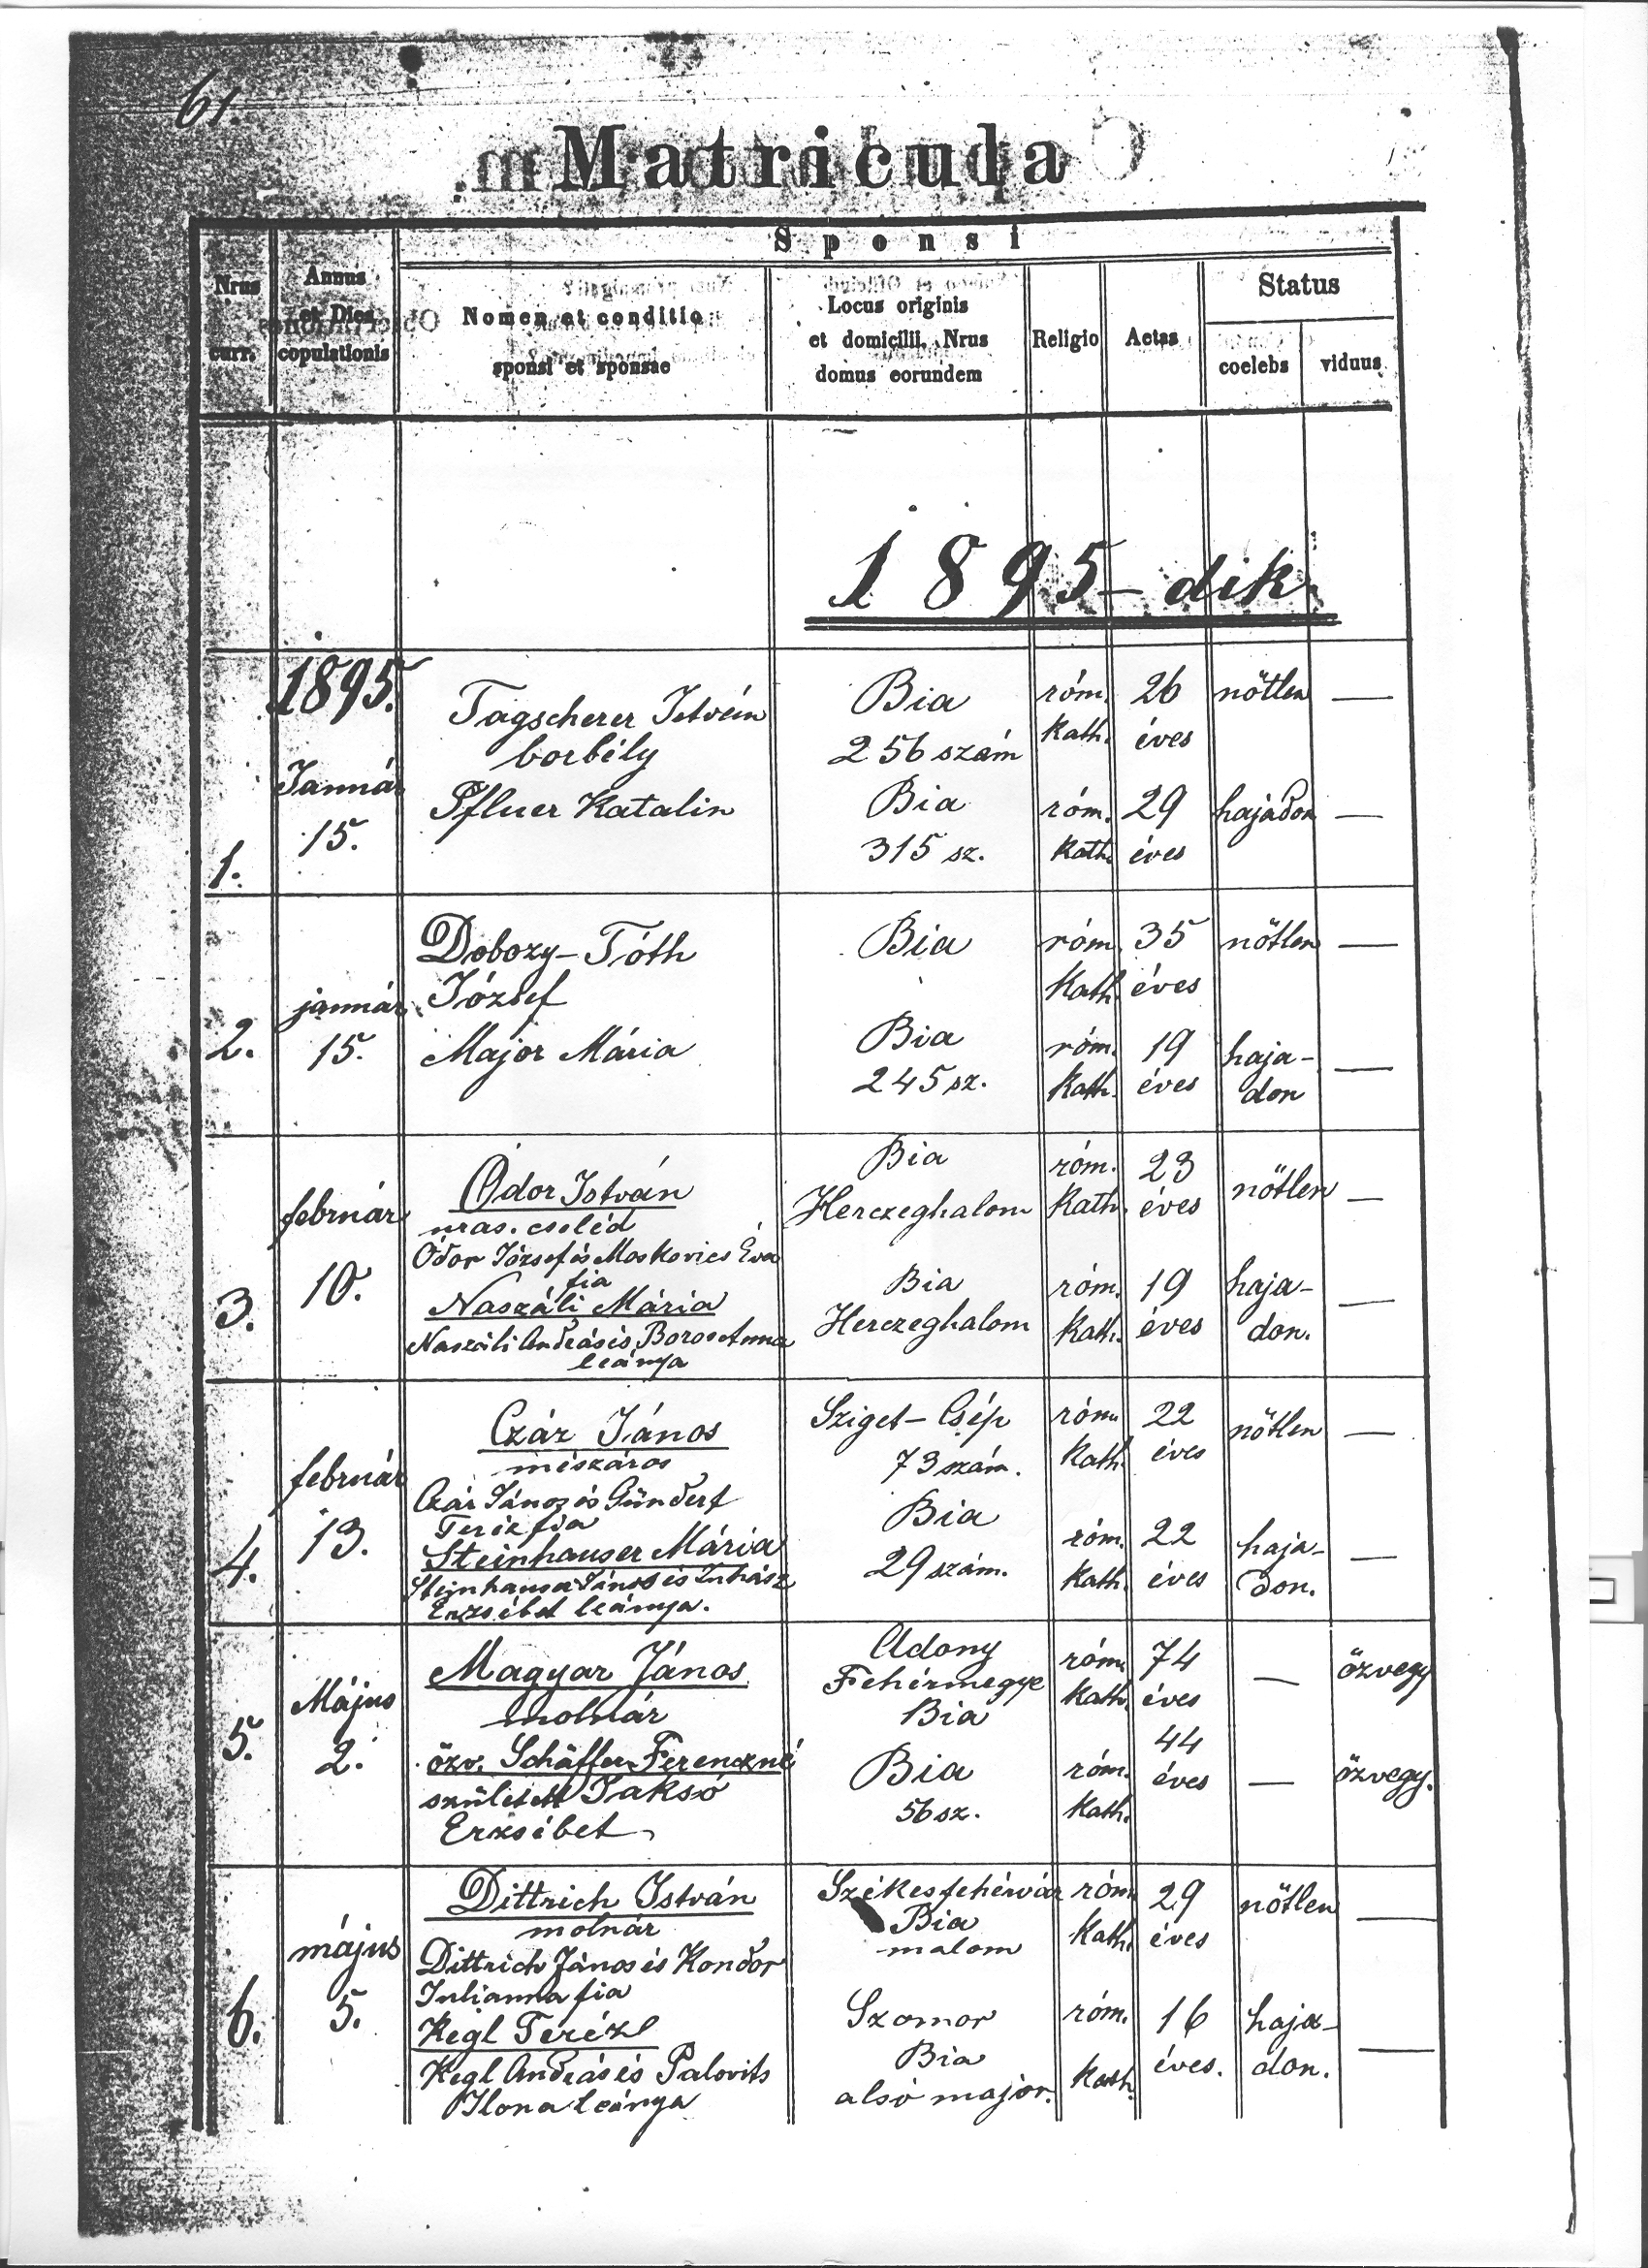 61.
Matricula
Sponsi
Nrus
curr.
Annus
et Dies
copulationis
Nomen et conditio
sponsi et sponsae
Locus originis
et domicilii. Nrus
domus eorundem
Religio
Aetas
Status
coelebs
viduus
1895-dik
1.
1895.
Január
15.
Tagscherer István
borbély
Bia
256 szám
róm.
kath.
26
éves
nőtlen
—
Pfluer Katalin
Bia
315 sz.
róm.
kath.
29
éves
hajadon
—
2.
január
15.
Dobozy-Tóth
József
Bia
róm.
kath.
35
éves
nőtlen
—
Major Mária
Bia
245 sz.
róm.
kath.
19
éves
haja-
don
—
3.
február
10.
Ódor István
uras. cseléd
Ódor József és Moskovics Éva
fia
Bia
Herczeghalom
róm.
kath.
23
éves
nőtlen
—
Naszáli Mária
Naszáli András és Boros Anna
leánya
Bia
Herczeghalom
róm.
kath.
19
éves
haja-
don.
—
4.
február
13.
Czár János
mészáros
Czár János és Gündert
Teréz fia
Sziget-Csép
73 szám.
róm.
kath.
22
éves
nőtlen
—
Steinhauser Mária
Steinhauser János és Juhász
Erzsébet leánya.
Bia
29 szám.
róm.
kath.
22
éves
haja-
don.
—
5.
Május
2.
Magyar János
molnár
Adony
Fehérmegye
Bia
róm.
kath.
74
éves
—
özvegy
özv. Schäffer Ferenczné
született Jaksó
Erzsébet
Bia
56 sz.
róm.
kath.
44
éves
—
özvegy.
6.
május
5.
Dittrich István
molnár
Dittrich János és Kondor
Julianna fia
Székesfehérvár
Bia
malom
róm.
kath.
29
éves
nőtlen
—
Kegl Teréz
Kegl András és Palovits
Ilona leánya
Szomor
Bia
alsó major.
róm.
kath.
16
éves.
haja-
don.
—